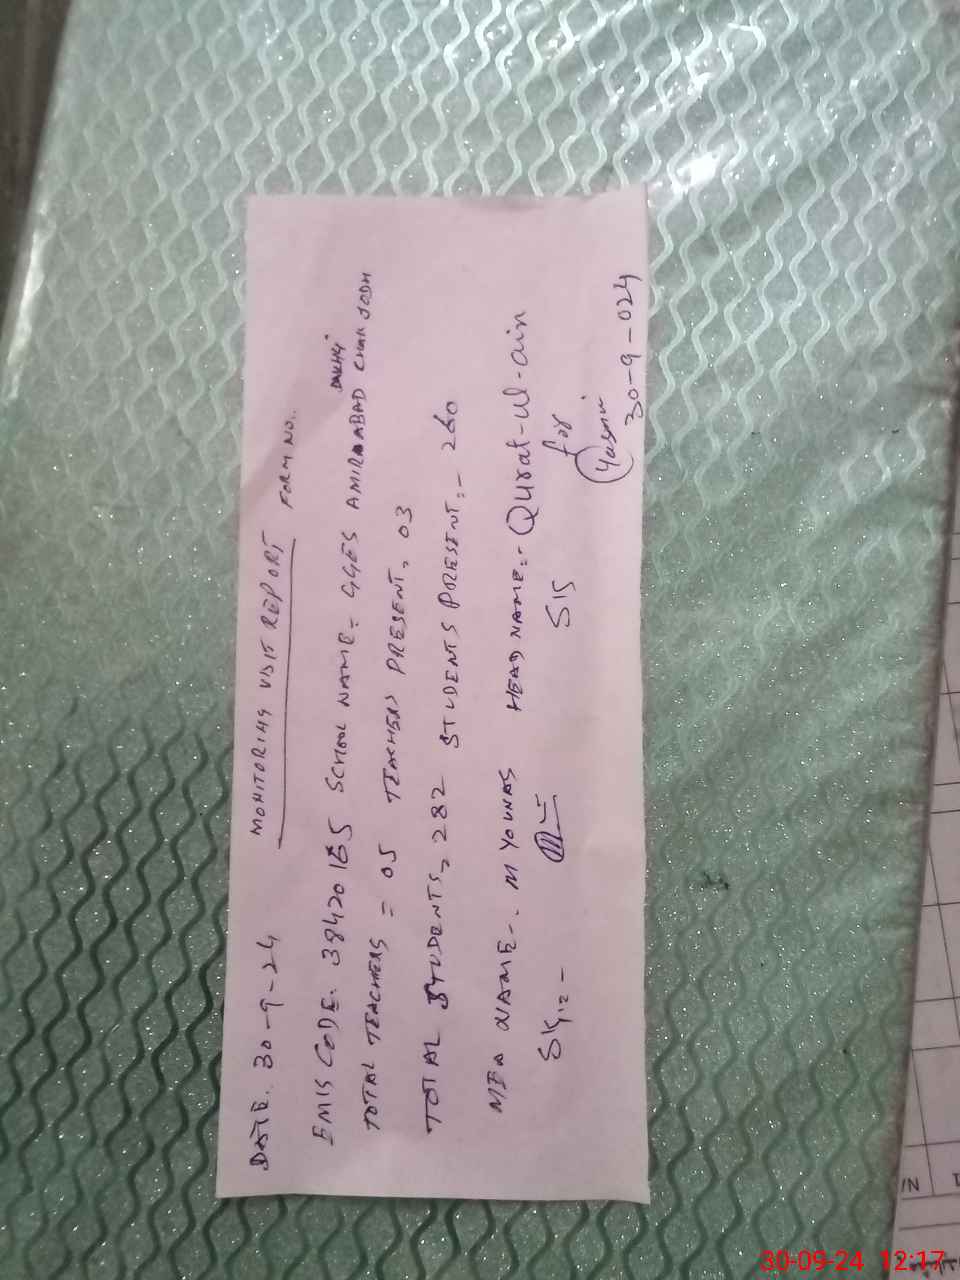 MONITORING VISIT REPORT
DATE. 30-9-24 FORM NO..
EMIS CODE. 38420165 SCHOOL NAME= GGES AMIRAABAD CHAK JODH
TOTAL TEACHERS = 05 TEACHERS PRESENT, 03
TOTAL STUDENTS, 282 STUDENTS PRESENT:- 260
MEA NAME-. M YOUNAS HEAD NAME:- Qurat-ul-ain
Sig:- SIS for
Yasmin
30-9-024
30-09-24 12:17